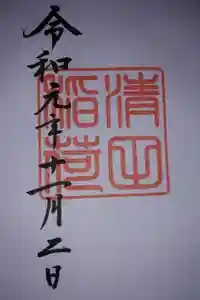 令和元年十一月二日
清正
稲荷